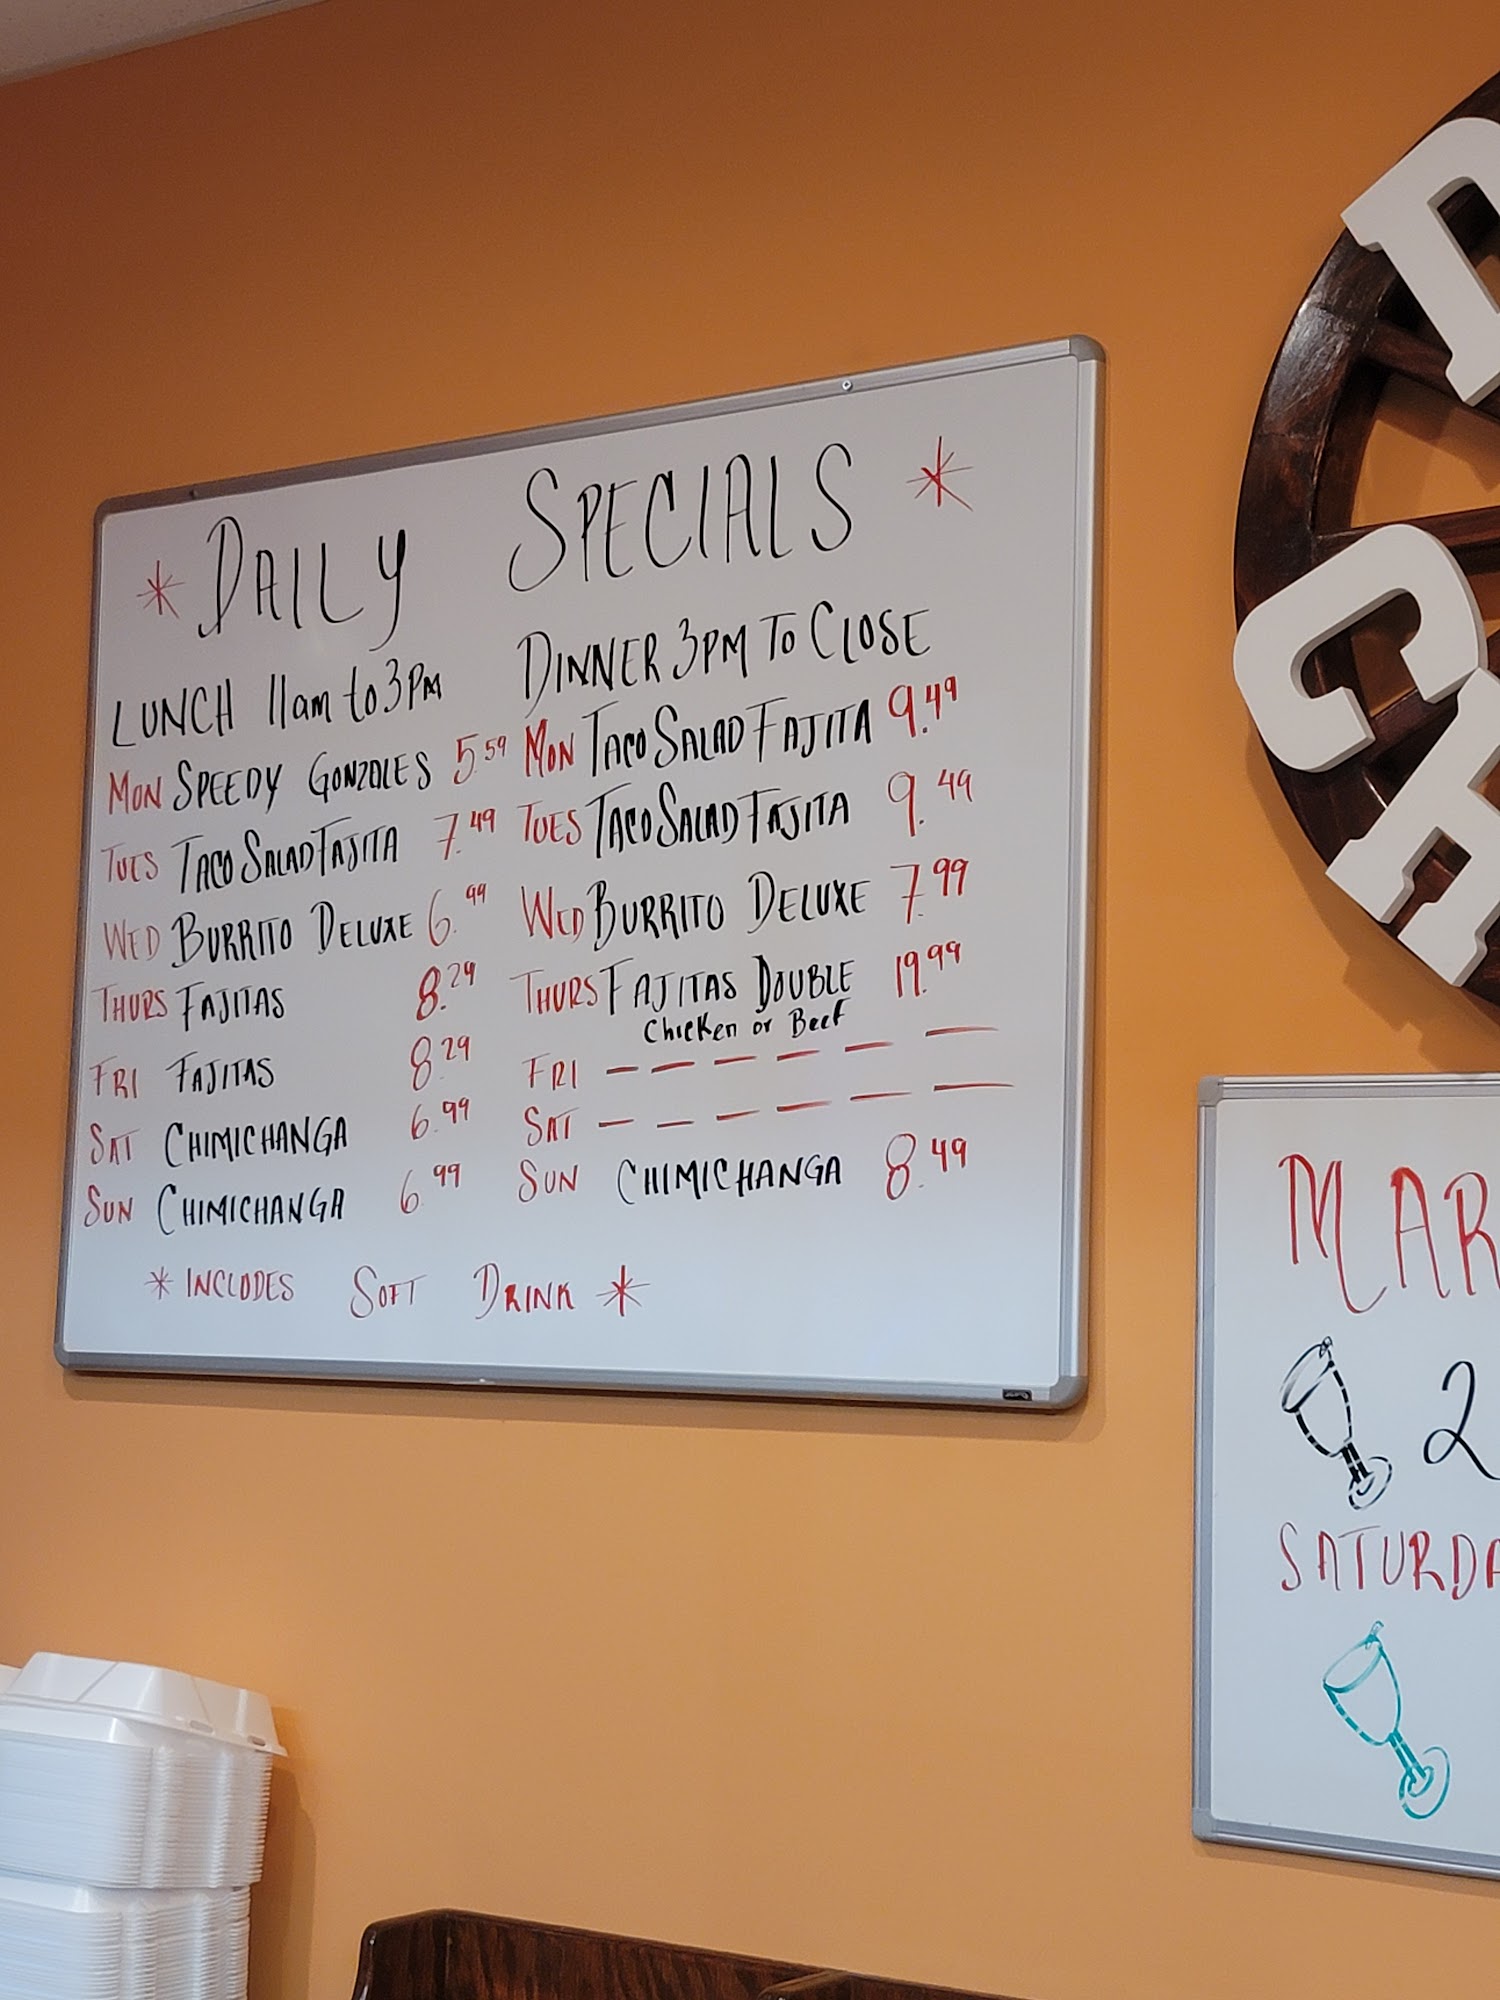 * DAILY SPECIALS *
LUNCH 11am to 3PM
MON SPEEDY GONZOLES 5.59
TUES TACO SALAD FAJITA 7.49
WED BURRITO DELUXE 6.99
THURS FAJITAS 8.29
FRI FAJITAS 8.29
SAT CHIMICHANGA 6.99
SUN CHIMICHANGA 6.99
DINNER 3PM TO CLOSE
MON TACO SALAD FAJITA 9.49
TUES TACO SALAD FAJITA 9.49
WED BURRITO DELUXE 7.99
THURS FAJITAS DOUBLE 19.99
Chicken or Beef
FRI — — — — — —
SAT — — — — — —
SUN CHIMICHANGA 8.49
* INCLUDES SOFT DRINK *
C
H
MAR
2
SATURDA